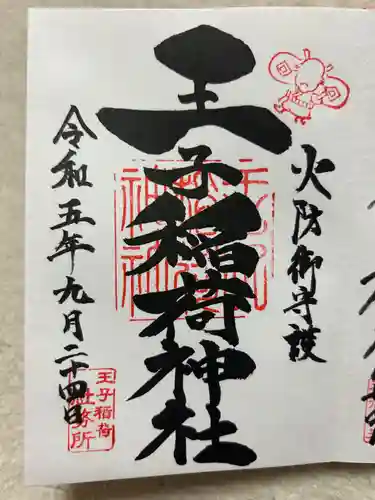 火防御守護
王子稲荷神社
令和五年九月二十四日
王子稲荷
社務所